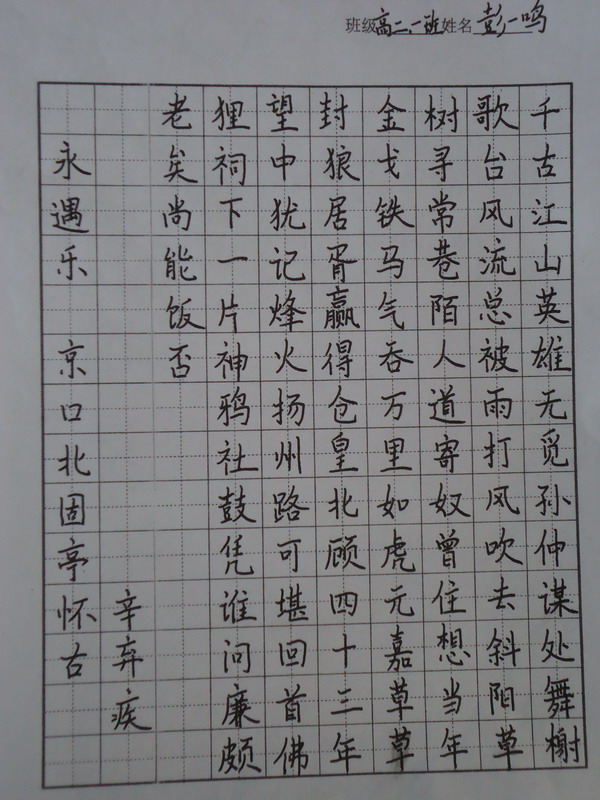 班级高二.一班姓名彭一鸣
千古江山英雄无觅孙仲谋处舞榭
歌台风流总被雨打风吹去斜阳草
树寻常巷陌人道寄奴曾住想当年
金戈铁马气吞万里如虎元嘉草草
封狼居胥赢得仓皇北顾四十三年
望中犹记烽火扬州路可堪回首佛
狸祠下一片神鸦社鼓凭谁问廉颇
老矣尚能饭否
辛弃疾
永遇乐 京口北固亭怀古